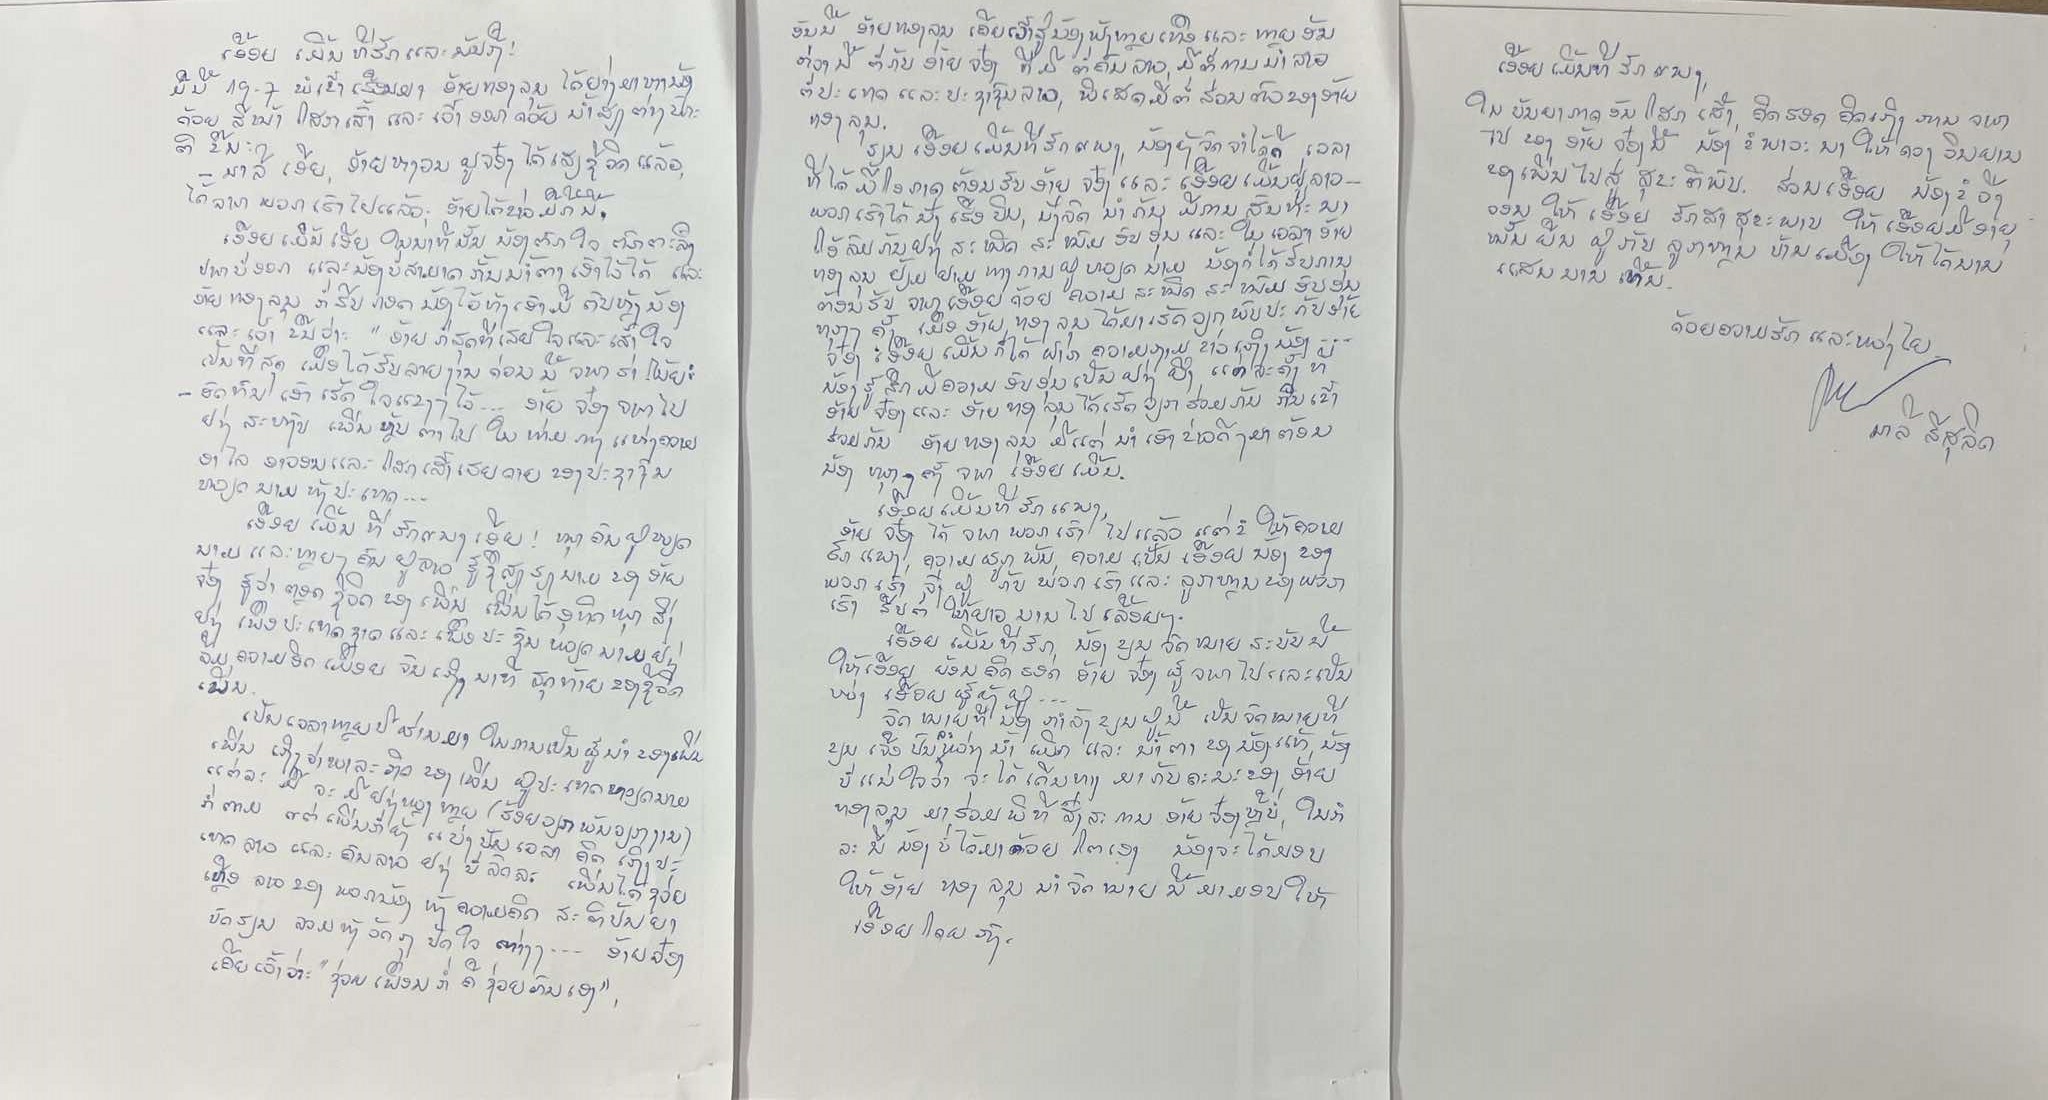 ເອື້ອຍ ເມີ້ນ ທີ່ຮັກ ແລະ ນັບຖື!
ມື້ນີ້ 19-7 ພໍເຂົ້າເຮືອນມາ ອ້າຍທອງລຸນ ໄດ້ຍ່າງມາຫານ້ອງ
ດ້ວຍ ສີໜ້າ ໂສກເສົ້າ ແລະ ເວົ້າອອກດ້ວຍ ນ້ຳສຽງ
- ນາລີ ເອີຍ, ອ້າຍຫງວນ ຝູຈ້ອງ ໄດ້ເສຍຊີວິດ ແລ້ວ,
ໄດ້ຈາກ ພວກເຮົາໄປແລ້ວ. ອ້າຍໄດ້ຂ່າວ
ເອື້ອຍ ເມີ້ນ ເອີຍ ໃນນາທີນັ້ນ ນ້ອງຕົກໃຈ ຕົກຕະລຶງ
ປາກບໍ່ອອກ ແລະນ້ອງບໍ່ສາມາດກັ້ນນ້ຳຕາເອົາໄວ້ໄດ້ ແລະ
ອ້າຍທອງລຸນ ກໍຮີບກອດນ້ອງໄວ້ທັງເອົາມື ຕົບຫຼັງນ້ອງ
ແລະ ເວົ້າ ຂຶ້ນວ່າ: "ອ້າຍ ກໍສຸດທີ່ເສຍໃຈແລະເສົ້າໃຈ
ເປັນທີ່ສຸດ ເມື່ອໄດ້ຮັບລາຍງານດ່ວນນີ້
- ອົດທົນ ເອົາ ເຮັດ ໃຈແຂງໆໄວ້... ອ້າຍ ຈ້ອງ ຈາກໄປ
ຢ່າງ ສະຫງົບ ເພິ່ນຫຼັບຕາໄປ ໃນ ທ່າມກາງ ແຫ່ງຄວາມ
ອາໄລ ອາວອນແລະ ໂສກເສົ້າເສຍດາຍ ຂອງປະຊາຊົນ
ຫວຽດນາມ ທັງປະເທດ...
ເອື້ອຍ ເມີ້ນ ທີ່ ຮັກແພງ ເອີຍ! ທຸກຄົນຢູ່ຫວຽດ
ນາມ ແລະຫຼາຍໆຄົນ ຢູ່ລາວ ຮູ້ຊື່ສຽງຮຽງນາມ ຂອງ ອ້າຍ
ຈ້ອງ ຮູ້ວ່າ ຕະຫຼອດຊີວິດ ຂອງ ເພິ່ນ ເພິ່ນໄດ້ອຸທິດທຸກສິ່ງ
ຢ່າງ ເພື່ອປະເທດຊາດແລະ ເພື່ອປະຊົນ ຫວຽດນາມ
ລືມຄວາມອິດເມື່ອຍ ຈົນເຖິງ ນາທີ ສຸດທ້າຍຂອງຊີວິດ
ເພິ່ນ.
ເປັນເວລາຫຼາຍປີຜ່ານມາ ໃນການເປັນຜູ້ນຳ ຂອງເພິ່ນ
ເພິ່ນ ເຖິງວ່າພາລະກິດ ຂອງເພິ່ນ ຢູ່ປະເທດຫວຽດນາມ
ແຕ່ລະ ມື້ ຈະ ມີຢ່າງຫຼວງຫຼາຍ (ຮ້ອຍວຽກພັນວຽກງານ)
ກໍຕາມ ແຕ່ເພິ່ນກໍຍັງ ແບ່ງປັນເວລາ ຄິດເຖິງປະ-
ເທດລາວ ແລະ ຄົນລາວ ຢ່າງ ບໍ່ລົດລະ ເພິ່ນໄດ້ຊ່ວຍ
ເຫຼືອ ລາວ ຂອງ ພວກນ້ອງ ທັງ ຄວາມຄິດ ສະຕິປັນຍາ
ບົດຮຽນ ລວມທັງ ວັດຖຸປັດໃຈ ຕ່າງໆ... ອ້າຍຈ້ອງ
ເຄີຍເວົ້າວ່າ: "ຊ່ວຍເພື່ອນ ກໍ່ຄືຊ່ວຍຕົນເອງ",
ອັນນີ້ ອ້າຍທອງລຸນ ເຄີຍເວົ້າສູ່ນ້ອງຟັງຫຼາຍເທື່ອ ແລະ ຫຼາຍອັນ
ຕໍ່ປະເທດ ແລະ ປະຊາຊົນລາວ, ພິເສດມີຕໍ່ ສ່ວນຕົວຂອງອ້າຍ
ທອງລຸນ.
ຮຽນ ເອື້ອຍເມີ້ນທີ່ຮັກແພງ, ນ້ອງຍັງຈົດຈຳໄດ້ດີ ເວລາ
ທີ່ໄດ້ ມີໂອກາດຕ້ອນຮັບ ອ້າຍ ຈ້ອງ ແລະ ເອື້ອຍເມີ້ນຢູ່ລາວ—
ພວກເຮົາໄດ້ ນັ່ງເຮືອບິນ, ນັ່ງລົດ ນຳກັນ ມີການສົນທະນາ
ໂອ້ລົມກັນຢ່າງ ສະໜິດສະໜົມ ອົບອຸ່ນ ແລະ ໃນເວລາອ້າຍ
ທອງລຸນ ຢ້ຽມຢາມ ທາງການຢູ່ ຫວຽດນາມ ນ້ອງກໍໄດ້ຮັບການ
ຕ້ອນຮັບ ຈາກເອື້ອຍດ້ວຍຄວາມສະໜິດສະໜົມອົບອຸ່ນ
ທຸກໆຄັ້ງ ເມື່ອ ອ້າຍທອງລຸນໄດ້ມາເຮັດວຽກພົບປະກັບອ້າຍ
ຈ້ອງ ເອື້ອຍເມີ້ນກໍໄດ້ຝາກຄວາມຖາມຂ່າວເຖິງນ້ອງ...
ນ້ອງຮູ້ສຶກມີຄວາມອົບອຸ່ນເປັນຢ່າງຍິ່ງ ແຕ່ລະຄັ້ງທີ່
ອ້າຍຈ້ອງແລະ ອ້າຍທອງລຸນໄດ້ເຮັດວຽກຮ່ວມກັນ ກິນເຂົ້າ
ຮ່ວມກັນ ອ້າຍທອງລຸນ ມີແຕ່ນຳເອົາຂ່າວດີໆມາຕ້ອນ
ນ້ອງທຸກໆຄັ້ງຈາກເອື້ອຍເມີ້ນ.
ເອື້ອຍເມີ້ນທີ່ຮັກແພງ,
ອ້າຍຈ້ອງໄດ້ຈາກພວກເຮົາໄປແລ້ວ ແຕ່ຂໍໃຫ້ຄວາມ
ຮັກແພງ, ຄວາມຜູກພັນ, ຄວາມເປັນເອື້ອຍນ້ອງຂອງ
ພວກເຮົາ ຈົ່ງຢູ່ກັບພວກເຮົາ ແລະ ລູກຫຼານຂອງພວກ
ເຮົາ ສືບຕໍ່ໃຫ້ຍາວນານໄປເລື້ອຍໆ.
ເອື້ອຍເມີ້ນທີ່ຮັກ, ນ້ອງຂຽນຈົດໝາຍສະບັບນີ້
ໃຫ້ເອື້ອຍ ຍ້ອນຄິດຮອດອ້າຍຈ້ອງຜູ້ຈາກໄປແລະເປັນ
ຫ່ວງເອື້ອຍຜູ້ຍັງຢູ່...
ຈົດໝາຍທີ່ນ້ອງກຳລັງຂຽນຢູ່ນີ້ ເປັນຈົດໝາຍທີ່
ຂຽນເຈືອປົນລະຫວ່າງນ້ຳເມິກ ແລະ ນ້ຳຕາຂອງນ້ອງແທ້, ນ້ອງ
ບໍ່ແນ່ໃຈວ່າ ຈະໄດ້ເດີນທາງມາກັບຄະນະຂອງອ້າຍ
ທອງລຸນ ມາຮ່ວມພິທີສົ່ງສະການອ້າຍຈ້ອງຫຼືບໍ່, ໃນກໍ
ລະນີ ນ້ອງບໍ່ໄດ້ມາດ້ວຍໂຕເອງ ນ້ອງຈະໄດ້ມອບ
ໃຫ້ອ້າຍທອງລຸນນຳຈົດໝາຍນີ້ມາມອບໃຫ້
ເອື້ອຍໂດຍກົງ.
ເອື້ອຍເມີ້ນທີ່ຮັກແພງ,
ໃນບັນຍາກາດອັນໂສກເສົ້າ, ຄິດຮອດຄິດເຖິງ ການຈາກ
ໄປຂອງອ້າຍຈ້ອງນີ້ ນ້ອງຂໍພາວະນາໃຫ້ດວງວິນຍານ
ຂອງເພິ່ນໄປສູ່ສຸຂະຕິພົບ. ສ່ວນເອື້ອຍ ນ້ອງຂໍວິງ
ວອນໃຫ້ເອື້ອຍ ຮັກສາສຸຂະພາບ ໃຫ້ເອື້ອຍມີອາຍຸ
ໝັ້ນຍືນຢູ່ກັບລູກຫຼານບ້ານເມືອງ ໃຫ້ໄດ້ນານ
ແສນນານເທີ້ນ.
ດ້ວຍຄວາມຮັກ ແລະ ຫ່ວງໄຍ.
ນາລີ ສີສຸລິດ